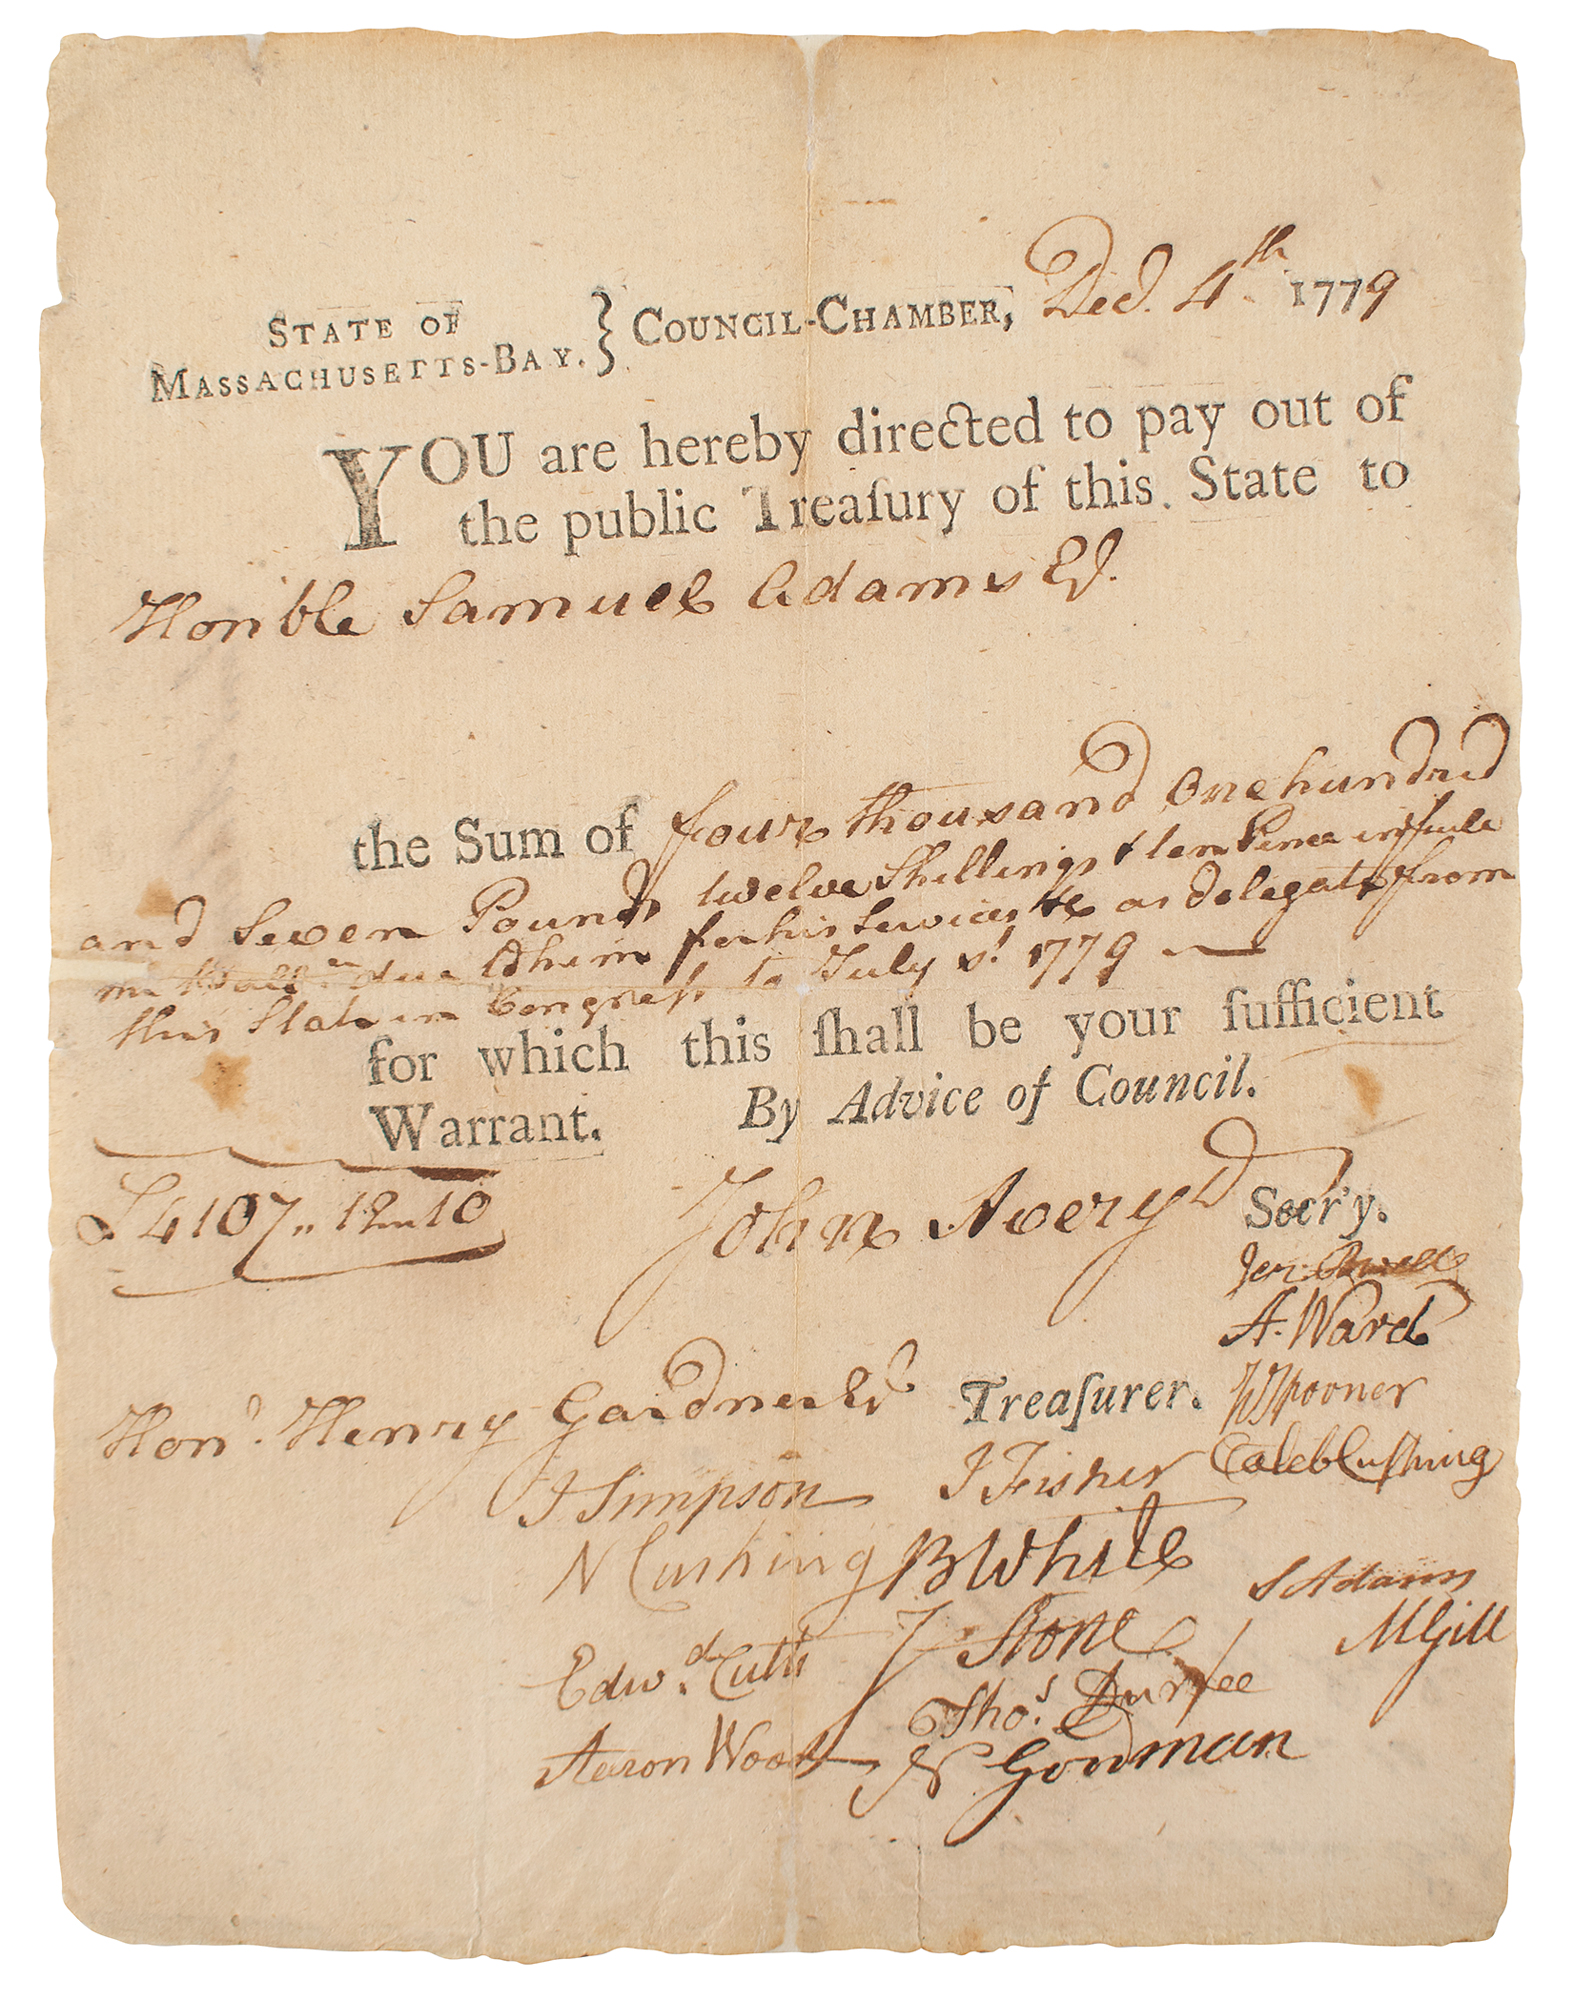 STATE OF
MASSACHUSETTS-BAY. } COUNCIL-CHAMBER, Decr. 4th 1779
YOU are hereby directed to pay out of
the public Treaſury of this State to
Honble Samuel Adams Esqr.
the Sum of four thousand One hundred
and Seven Pounds twelve Shillings & ten Pence in full
due to him for his Services &c as delegate from
this State in Congreſs to July 1779
for which this ſhall be your ſufficient
Warrant. By Advice of Council.
£4107,, 12,, 10
John Avery D Secr'y.
Jer: Powell
A. Ward
W Spooner
Honl. Henry Gardner Esqr Treaſurer.
Caleb Cuſhing
J Simpson J Fisher
N Cushing B White
S Adams
Edwd. Cutts J Stone M Gill
Thos. Durfee
Aaron Wood N Goodman